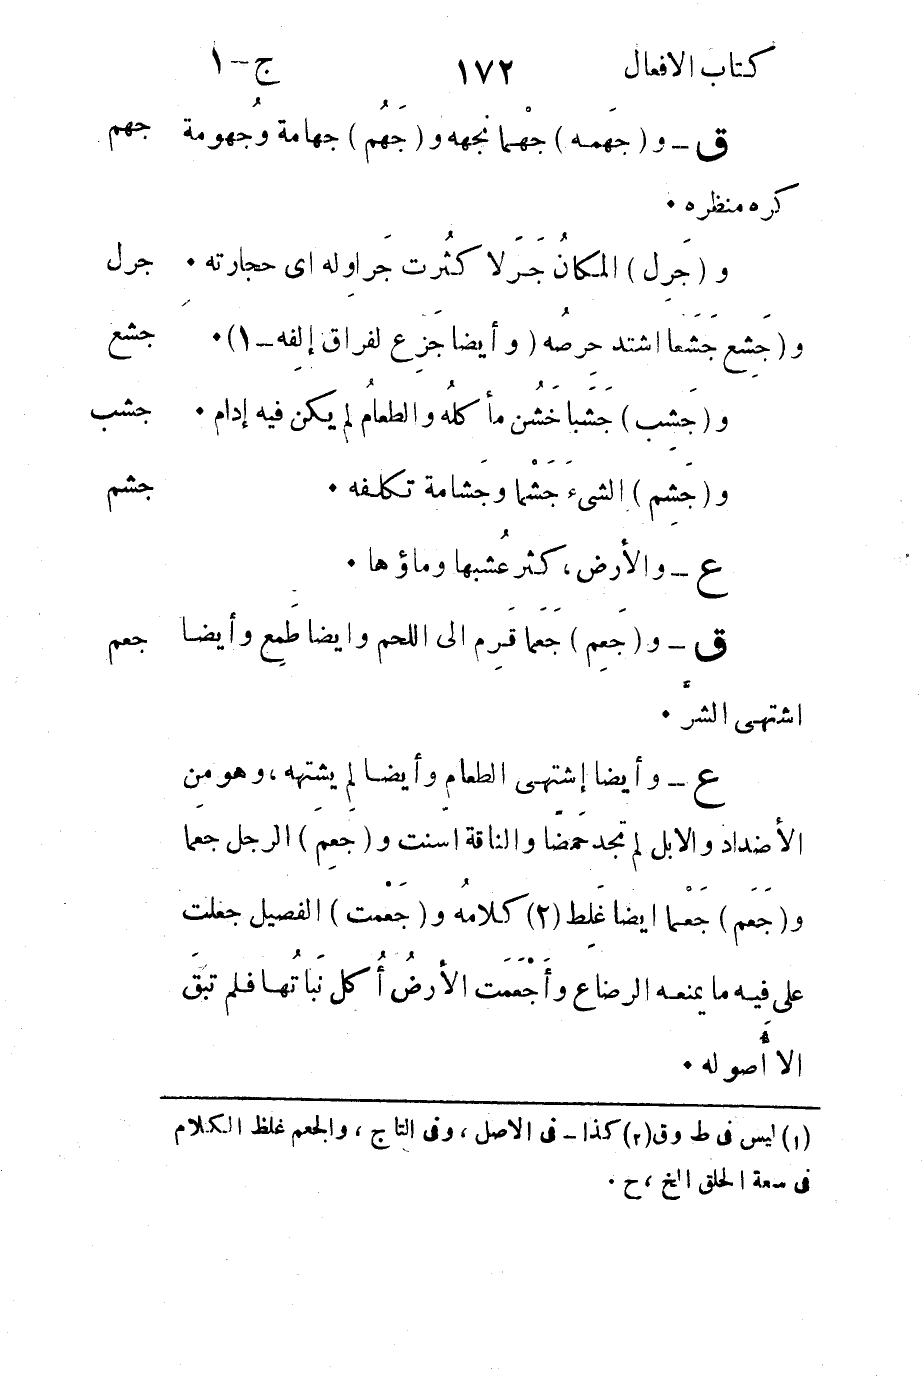 كتاب الافعال ١٧٢ ج – ١
ق – و ( جهَمه ) جهْما نجهه و ( جَهُم ) جهامة وجُهومة جهم
كره منظره ٠
و ( جَرِل ) المكانُ جَرَلا كثُرت جَراوِله اى حجارته ٠ جرل
و ( جَشِع جَشَعا اشتد حِرصُه ( و أيضا جَزِع لفراق إلفِه – ١ ) ٠ جشع
و ( جَشِب ) جَشَبا خَشُن مأكلُه والطعامُ لم يكن فيه إدام ٠ جشب
و ( جَشِم ) الشىءَ جَشْما وجَشامة تكلفه ٠ جشم
ع – والأرض، كثر عُشبها وماؤها ٠
ق – و ( جَعِم ) جَعَما قَرِم الى اللحم وايضا طَمِع وأيضا جعم
اشتهى الشرَّ ٠
ع – وأيضا إشتهى الطعام وأيضا لم يشتهِه ، وهو مِن
الأضداد والابل لم تجد حَمضًا والناقة اسنت و ( جَعِمَ ) الرجل جعما
و ( جَعَم ) جَعْما ايضا غَلِط (٢) كلامُه و ( جَعْمت ) الفصيل جعلت
على فِيه ما يمنعه الرضاع وأَجْعَمَت الأرضُ أُكل نَباتُها فلم تَبقَ
الا أُصوله ٠
(١) ليس فى ط وق (٢) كذا – فى الاصل ، وفى التاج ، والجعم غلظ الكلام
فى سعة الحلق الخ ، ح ٠